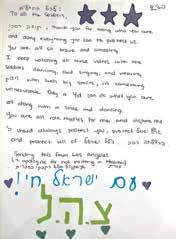 בס"ד
To all the soldiers,
thank you for being who you are
and doing everything you can to protect us.
You are all so brave and amazing.
I keep watching all these videos with the
soldiers dancing, and singing, and wearing
with such big smiles, its something
unbelievable. Only a Yid can do what you are
all doing with a smile and dancing.
You are all role models for me and inspire me
should always protect you,
and protect all of כלל ישראל
Sending this from Los Angeles
(I apologize for not writing in Hebrew)
עם ישראל חי!
צ.ה.ל